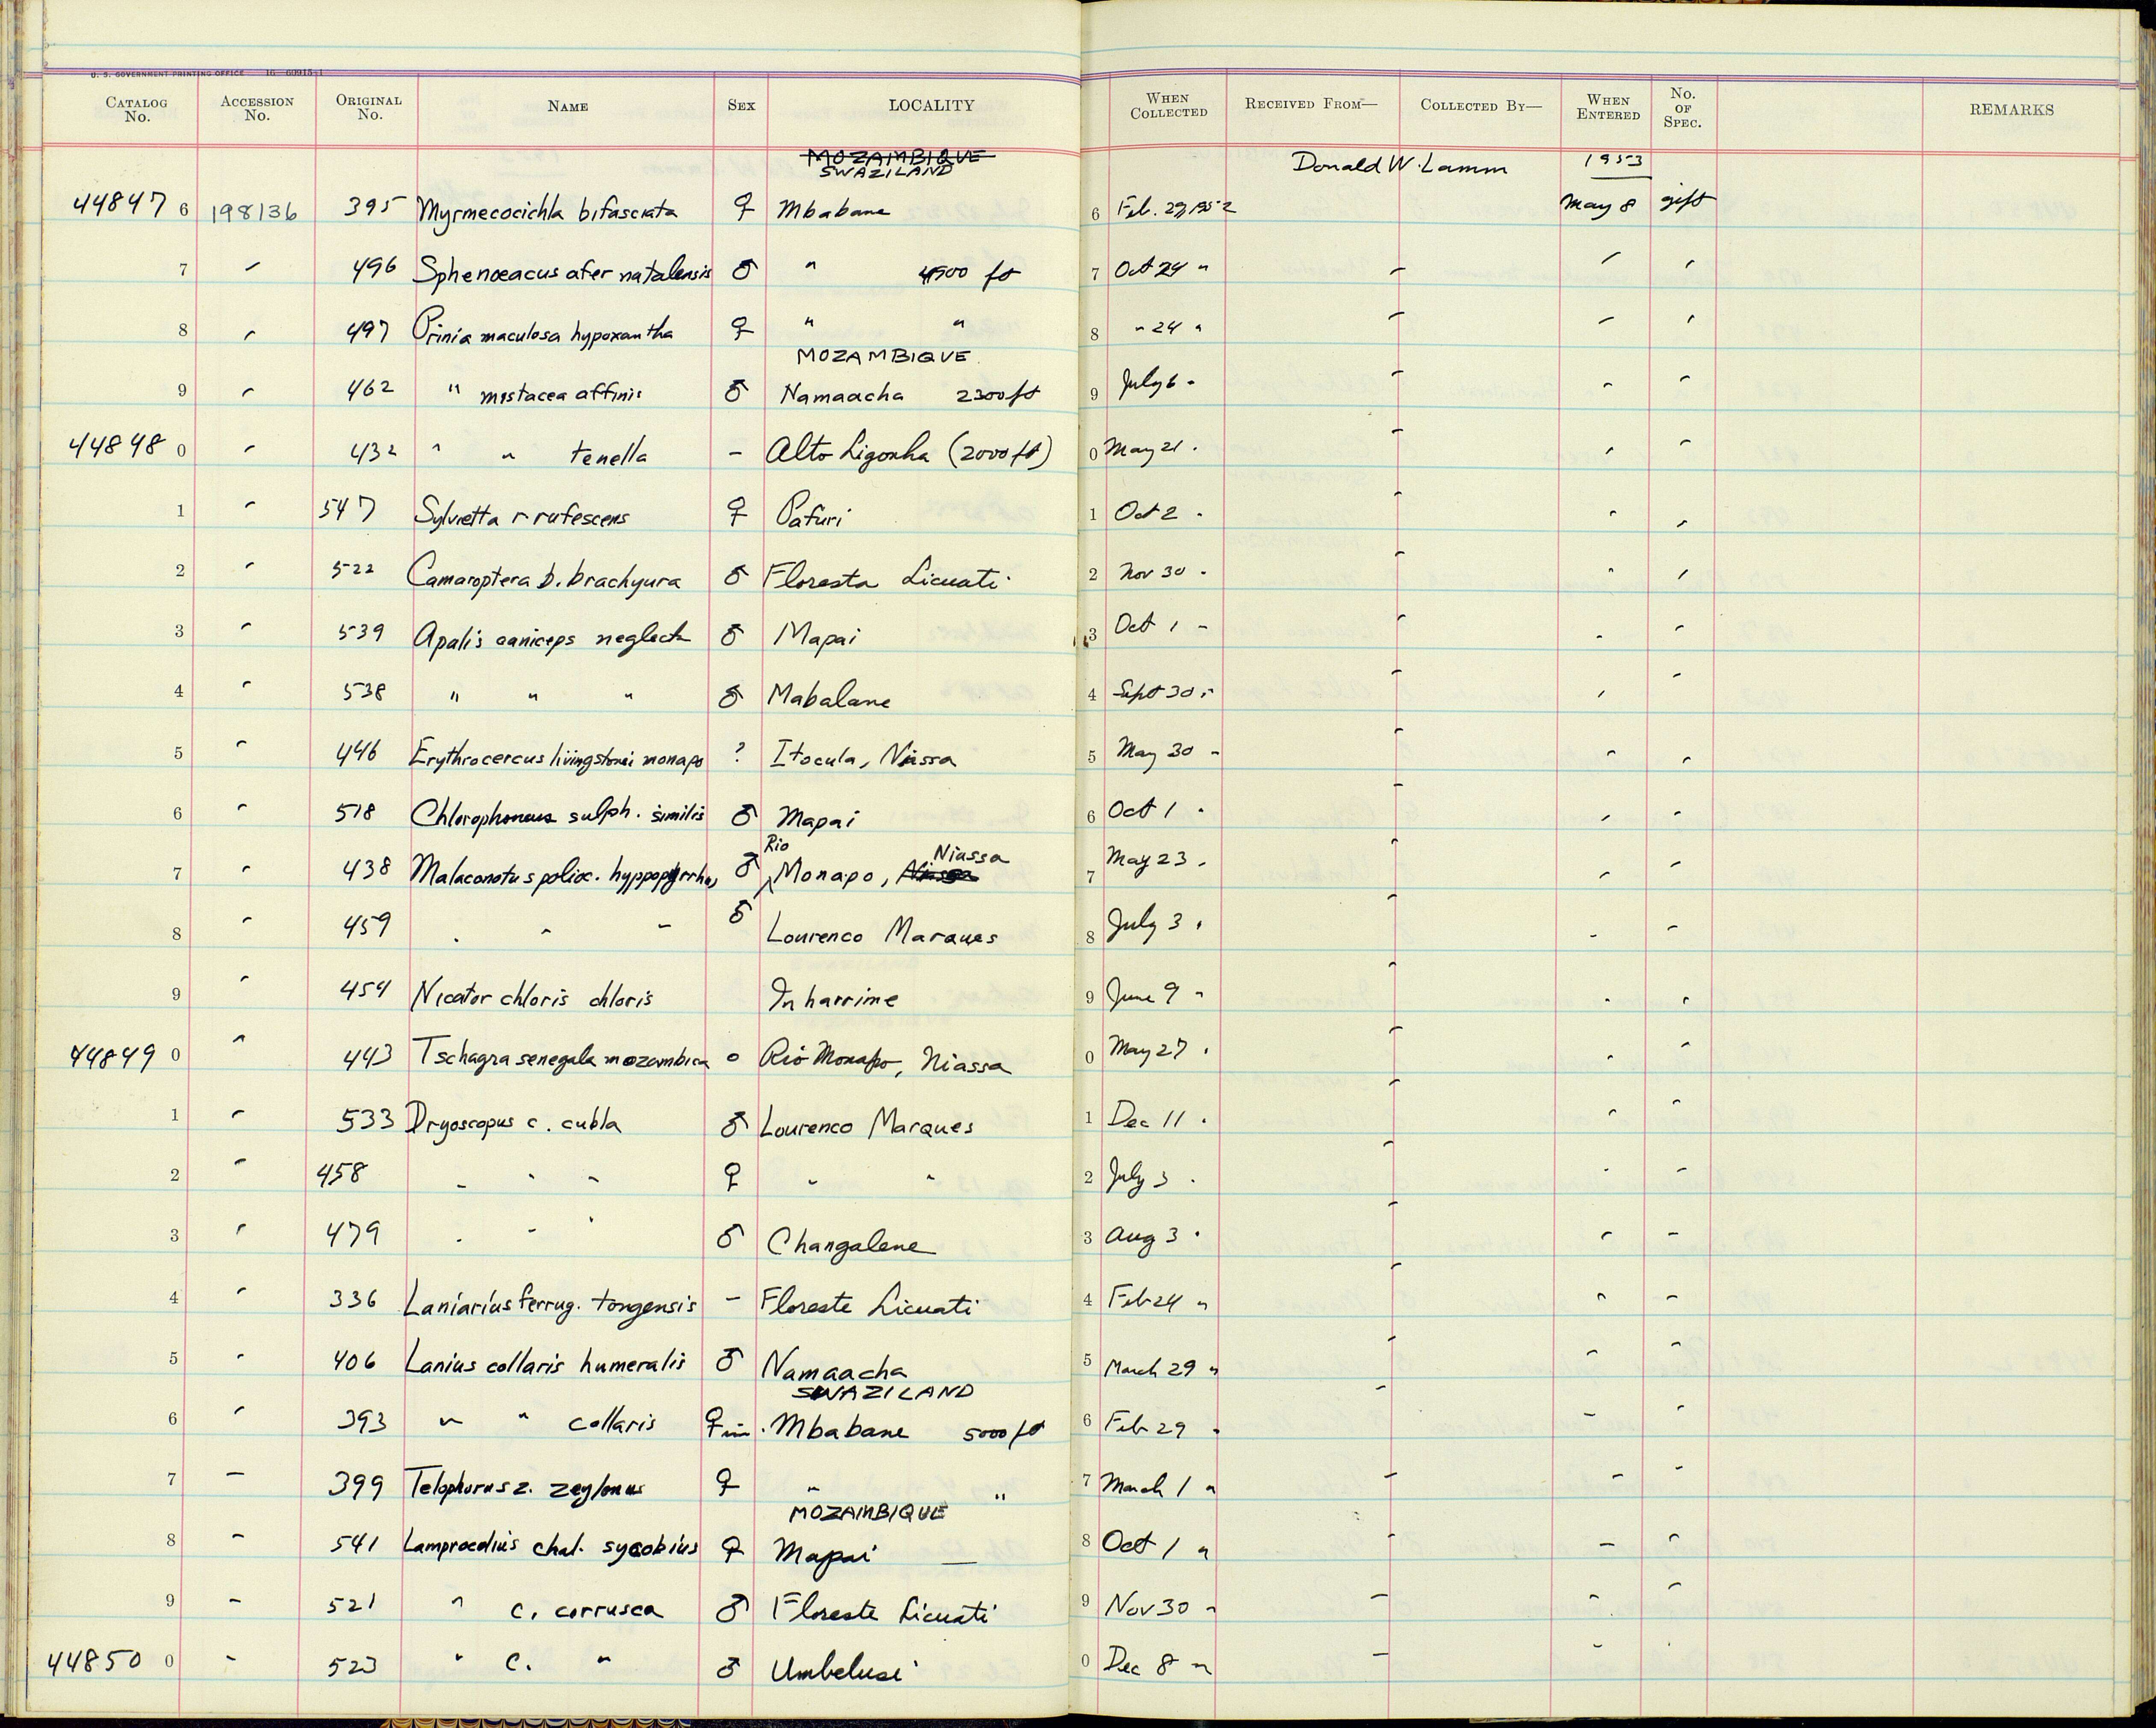 U. S. GOVERNMENT PRINTING OFFICE 16—60915-1
CATALOG No. ACCESSION No. ORIGINAL No. NAME SEX LOCALITY WHEN COLLECTED RECEIVED FROM— COLLECTED BY— WHEN ENTERED No. OF SPEC. REMARKS
MOZAMBIQUE
SWAZILAND Donald W. Lamm 1953
44847 6 198136 395 Myrmecocichla bifasciata ♀ Mbabane 6 Feb. 29, 1952 May 8 gift
7 " 496 Sphenœacus afer natalensis ♂ " 4500 ft 7 Oct 24 " " " "
8 " 497 Prinia maculosa hypoxantha ♀ " " 8 " 24 " " " "
MOZAMBIQUE
9 " 462 " mistacea affinis ♂ Namaacha 2300 ft 9 July 6 " " " "
44848 0 " 432 " " tenella – Alto Ligonha (2000 ft) 0 May 21 " " " "
1 " 547 Sylvietta r rufescens ♀ Pafuri 1 Oct 2 " " " "
2 " 522 Camaroptera b. brachyura ♂ Floresta Licuati 2 Nov 30 " " " "
3 " 539 Apalis caniceps neglecta ♂ Mapai 3 Oct 1 " " " "
4 " 538 " " " ♂ Mabalane 4 Sept 30 " " " "
5 " 446 Erythrocercus livingstonei monapo ? Itocula, Niassa 5 May 30 " " " "
6 " 518 Chlorophoneus sulph. similis ♂ Mapai 6 Oct 1 " " " "
Rio Niassa
7 " 438 Malaconotus polioc. hyppopyrrhos ♂ Monapo, Niassa 7 May 23 " " " "
8 " 459 " " " ♂ Lourenco Marques 8 July 3 " " " "
9 " 454 Nicator chloris chloris Inharrime 9 June 9 " " " "
44849 0 " 443 Tschagra senegala mozambica o Rio Monapo, Niassa 0 May 27 " " " "
1 " 533 Dryoscopus c. cubla ♂ Lourenco Marques 1 Dec 11 " " " "
2 " 458 " " " ♀ " " 2 July 3 " " " "
3 " 479 " " " ♂ Changalene 3 Aug 3 " " " "
4 " 336 Laniarius ferrug. tongensis – Floreste Licuati 4 Feb 24 " " " "
5 " 406 Lanius collaris humeralis ♂ Namaacha 5 March 29 " " " "
SWAZILAND
6 " 393 " " collaris ♀ im. Mbabane 5000 ft 6 Feb 29 " " " "
7 " 399 Telophorus z. zeylonus ♀ " " 7 March 1 " " " "
MOZAMBIQUE
8 " 541 Lamprocolius chal. sycobius ♀ Mapai — 8 Oct 1 " " " "
9 " 521 " c. corrusca ♂ Floreste Licuati 9 Nov 30 " " " "
44850 0 " 523 " c. " ♂ Umbelusi 0 Dec 8 " " "